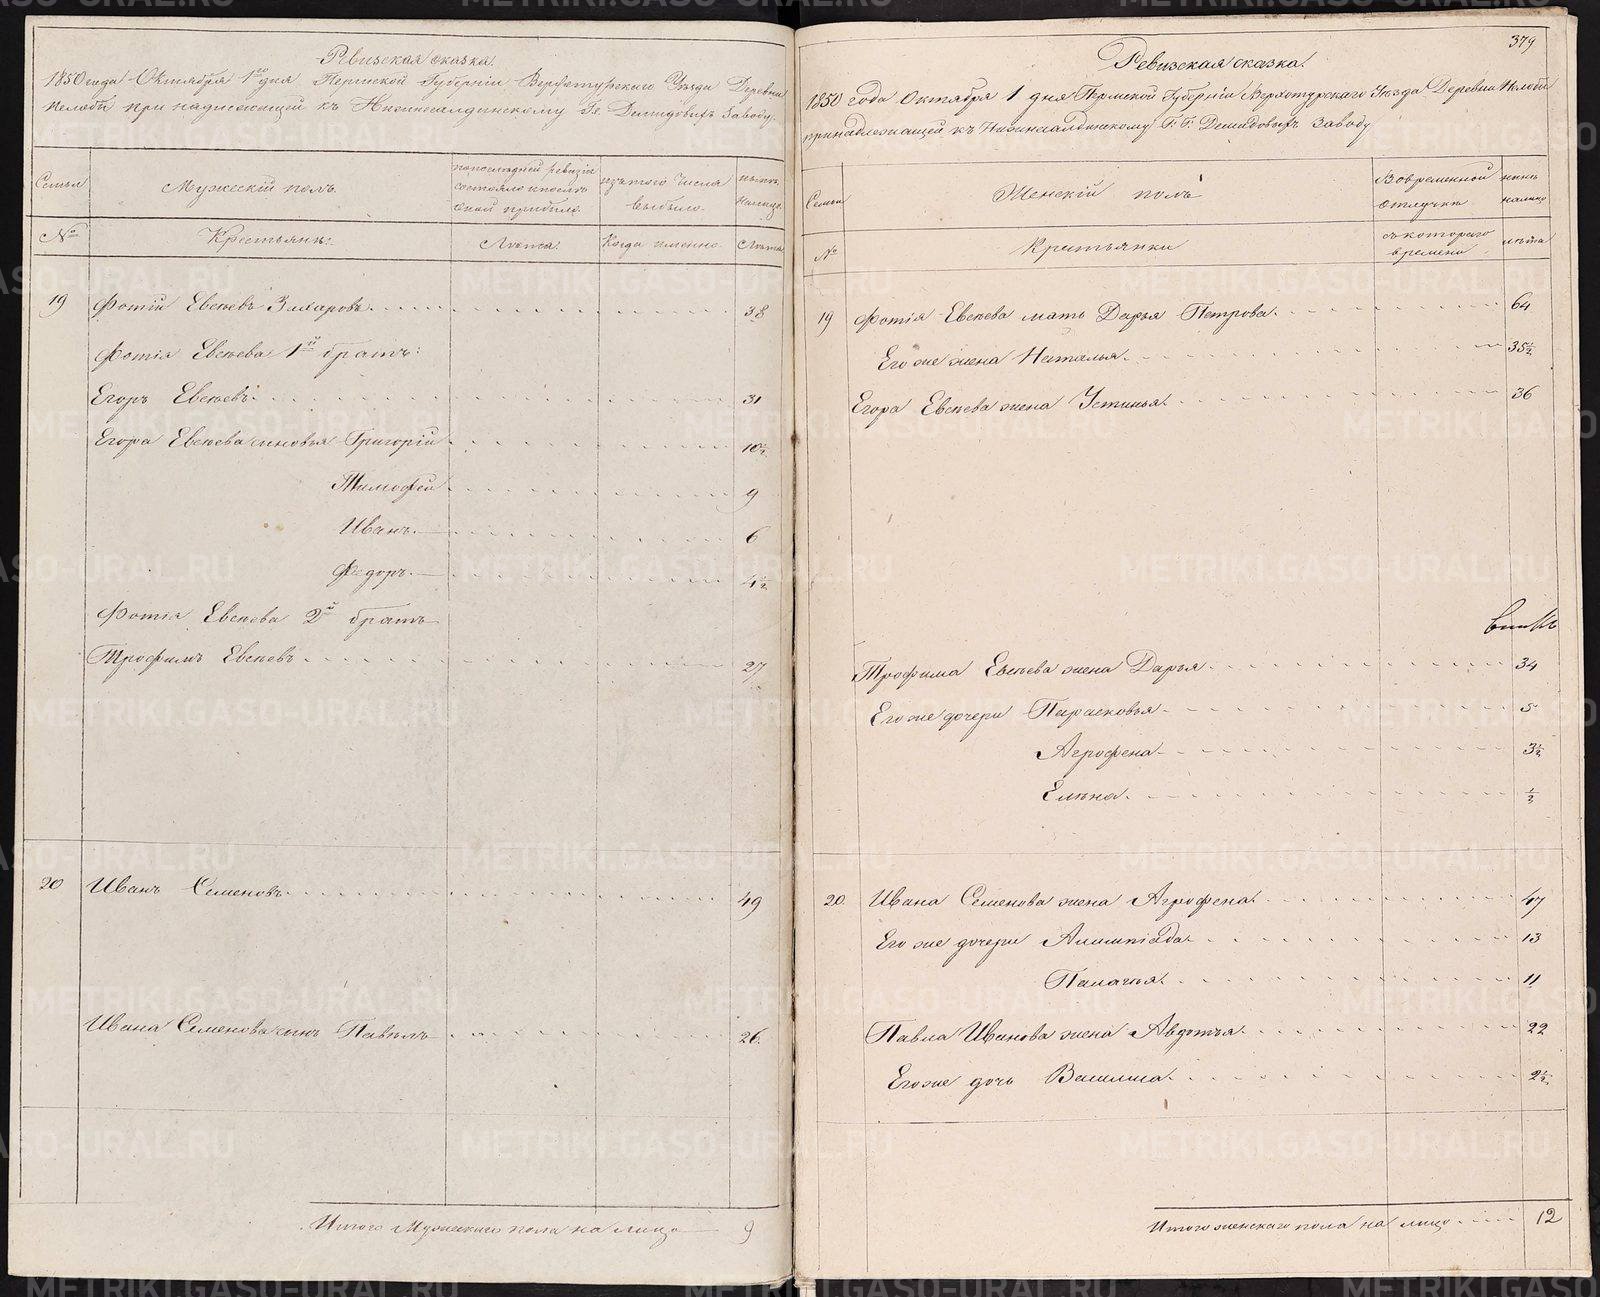 Ревизская сказка.
1850 года Октября 1го дня Пермской Губернiи Верхотурскаго Уѣзда Деревни
при надлежащей къ Нижнесалдинскому Гг. Демидовыхъ Заводу.
Семьи
Мужескiй полъ
по последней ревизiи состояло и после оной прибыло.
изъ того числа выбыло.
нынѣ на лицо.
№
Крестьянъ:
Лѣта.
Когда именно.
Лѣта
19 Фотiй Евсѣевъ 38
Фотiя Евсѣева 1й братъ:
Егоръ Евсѣевъ. 31
Егора Евсѣева сыновья Григорiй 10½
Тимофей 9
Иванъ. 6
Федоръ. 4½
Фотiя Евсѣева 2й братъ
Трофимъ Евсѣевъ 27
20 Иванъ Семеновъ 49
Ивана Семенова сынъ Павелъ 26.
Итого Мужескаго пола на лицо 9
379
Ревизская сказка.
1850 года Октября 1 дня Пермской Губернiи Верхотурскаго Уѣзда Деревни
принадлежащей къ Нижнесалдинскому Г: Г: Демидовыхъ Заводу
Семьи
Женскiй полъ
Во временной отлучкѣ
нынѣ на лицо
№
Крестьянки
съ котораго времени
лѣта
19 Фотiя Евсѣева мать Дарья Петрова. 64
Его же жена Наталья. 35½
Егора Евсѣева жена Устинья. 36
Трофима Евсѣева жена Дарья 34
Его же дочери Парасковья 5
Агрофена 3½
Елѣна. ½
20. Ивана Семенова жена Агрофена. 47
Его же дочери Алимпiада. 13
Палагья. 11
Павла Иванова жена Авдотья. 22
Его же дочь Василиса. 2½
Итого женскаго пола на лицо 12